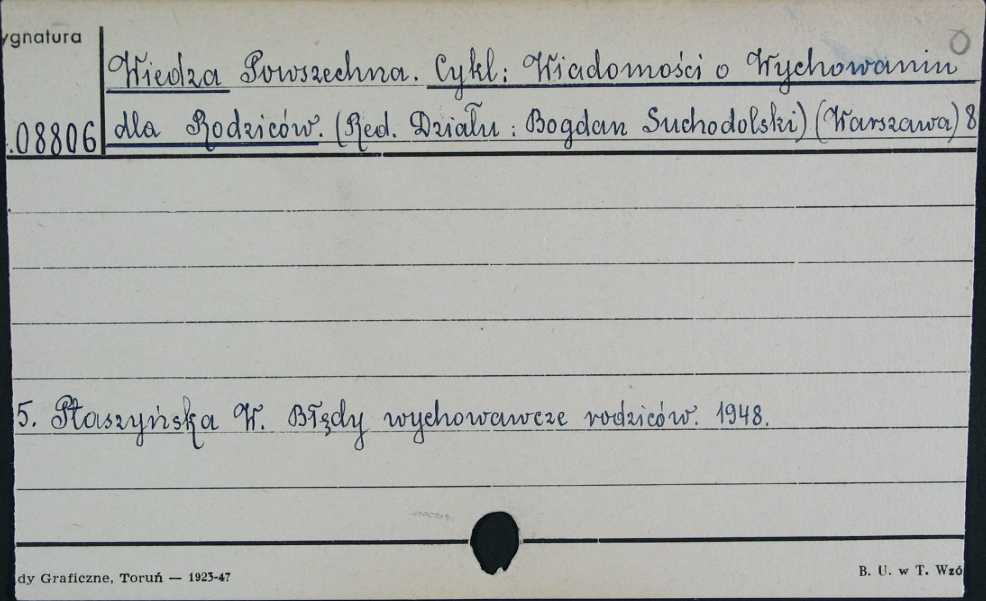 ygnatura
Wiedza Powszechna. Cykl: Wiadomości o Wychowaniu
.08806 dla Rodziców. (Red. Działu: Bogdan Suchodolski) (Warszawa) 8
5. Ptaszyńska W. Błędy wychowawcze rodziców. 1948.
dy Graficzne, Toruń — 1923-47 B. U. w T. Wzó